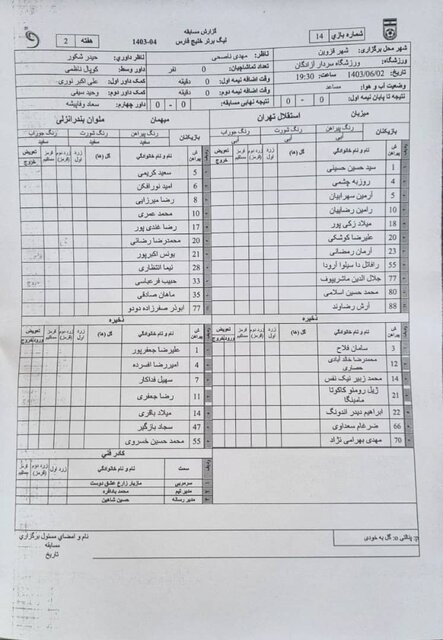 گزارش مسابقه
لیگ برتر خلیج فارس
1403-04
هفته 2
شماره بازی 14
شهر محل برگزاری: شهر قزوین
ورزشگاه: ورزشگاه سردار آزادگان
تاریخ: 1403/06/02 ساعت: 19:30
وضعیت آب و هوا: مساعد
نتیجه تا پایان نیمه اول: 0 - 0
ناظر: مهدی ناصحی
تعداد تماشاچیان: 0 نفر
وقت اضافه نیمه اول: 0 دقیقه
وقت اضافه نیمه دوم: 0 دقیقه
نتیجه نهایی مسابقه: 0 - 0
ناظر داوری: حیدر شکور
داور وسط: کوپال ناظمی
کمک داور اول: علی اکبر نوری
کمک داور دوم: وحید سیفی
داور چهارم: سعاد وفاپیشه
میزبان استقلال تهران
بازیکنان رنگ پیراهن آبی رنگ شورت آبی رنگ جوراب آبی
ش پیراهن نام و نام خانوادگی گل (ها)
1 سید حسین حسینی
4 روزبه چشمی
5 آرمین سهرابیان
10 رامین رضاییان
18 میلاد زکی پور
20 علیرضا کوشکی
23 آرمان رمضانی
55 رافائل دا سیلوا آرودا
77 جلال الدین ماشریپوف
80 محمد حسین اسلامی
88 آرش رضاوند
ذخیره
ش پیراهن نام و نام خانوادگی گل (ها)
3 سامان فلاح
12 محمدرضا خالد آبادی حصاری
14 محمد زبیر نیک نفس
21 ژیل رومئو کاکوتا مامبنگا
22 ابراهیم دیدر اندونگ
66 ضرغام سعداوی
70 مهدی بهرامی نژاد
میهمان ملوان بندرانزلی
بازیکنان رنگ پیراهن سفید رنگ شورت سفید رنگ جوراب سفید
ش پیراهن نام و نام خانوادگی گل (ها)
5 سعید کریمی
6 امید نورافکن
8 رضا میرزایی
10 محمد عمری
17 رضا غندی پور
20 محمدرضا رضائی
21 یونس اکبرپور
28 نیما انتظاری
33 حبیب فرعباسی
35 ماهان صادقی
77 ابوذر صفرزاده دودو
ذخیره
ش پیراهن نام و نام خانوادگی گل (ها)
1 علیرضا جعفرپور
4 امیررضا افسرده
7 سهیل فداکار
11 رضا جعفری
14 میلاد باقری
47 سجاد بازگیر
55 محمد حسین خسروی
کادر فنی
سمت نام و نام خانوادگی
سرمربی مازیار زارع عشق دوست
مدیر تیم
مدیر رسانه حسین شاهین
p: پنالتی o: گل به خودی
نام و امضای مسئول برگزاری مسابقه
تاریخ